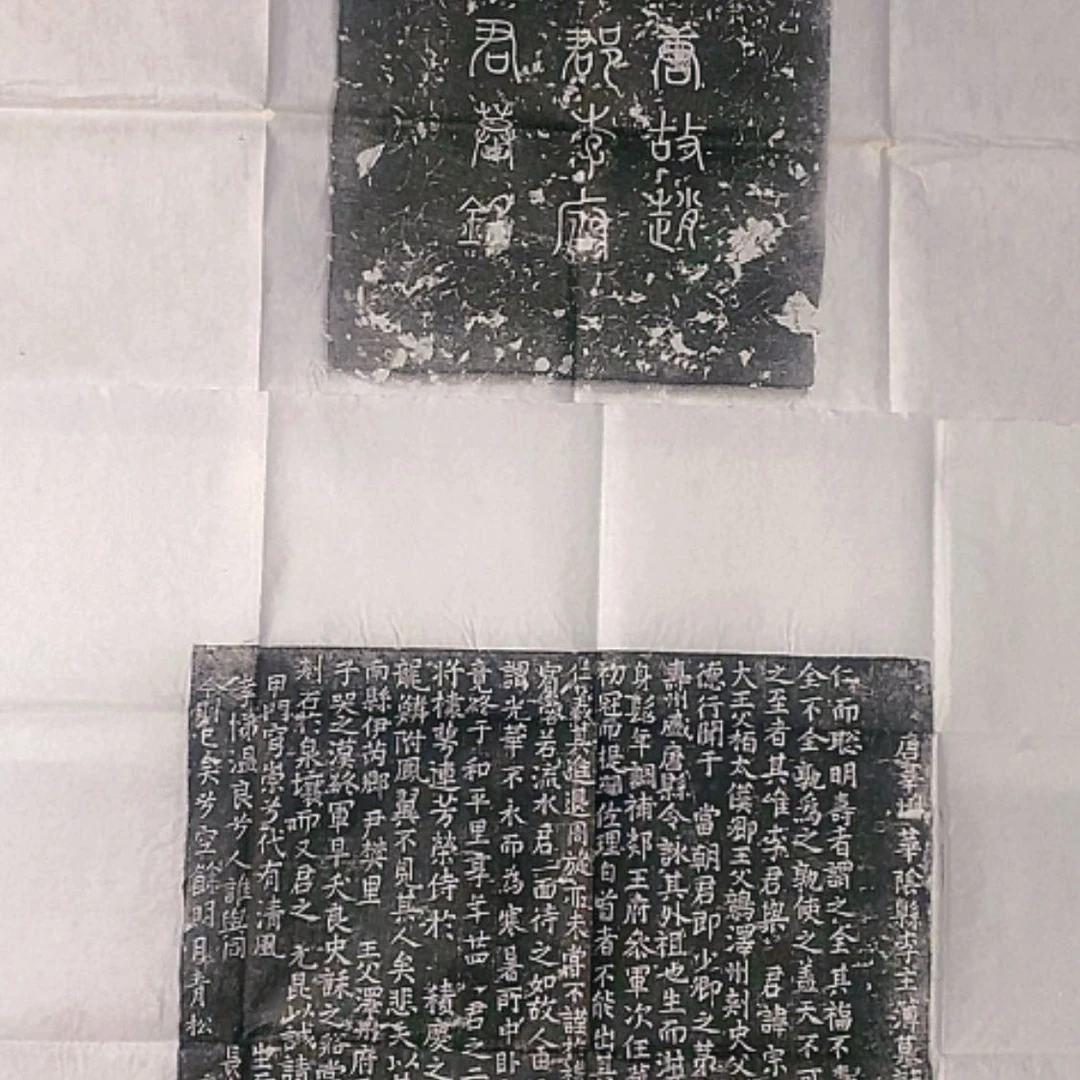 唐故趙
郡李府
君墓銘
唐華州華陰縣李主簿墓誌
仁而聡明壽者謂之全其福不
全不全孰為之孰使之蓋天不可
之至者其唯李君與 君諱宗
大王父栢太僕卿王父鶚澤州刾史父
德行聞于 當朝君即少卿之第
壽州盛唐縣令詠其外祖也生而
身髫年調補郊王府叅軍次任華
初冠而提 佐理自 者不能出其
仁義其進退周旋亦未嘗不謹
若流水君一面待之如故人由
謂光華不永而為寒暑所中卧
竟終于和平里享年廿四君之二
将棣萼連芳榮侍於 積慶之
龍鱗附鳳翼不見其人矣悲夫以
南縣伊芮鄉 尹樊里 王父澤州府
子哭之漠終軍早夭良史詠之
刻石於泉壤而又君之 元昆山誠請
甲門穹崇兮代有清風
孝悌温良兮人誰與同
今則已矣兮空餘明月青松